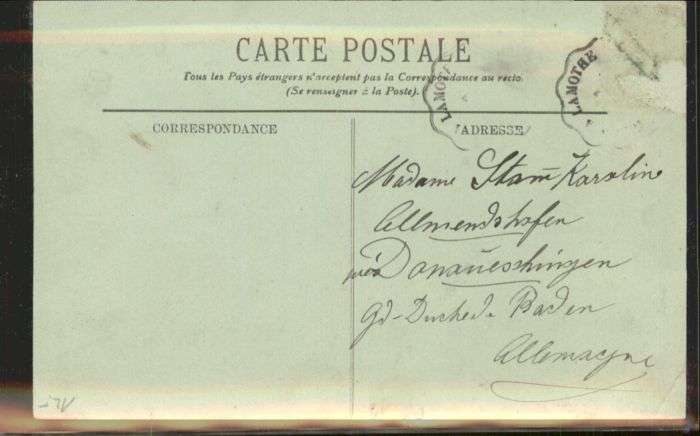 CARTE POSTALE
Tous les Pays étrangers n'acceptent pas la Correspondance au recto.
(Se renseigner à la Poste).
LAMOTHE
LAMOTHE
CORRESPONDANCE
ADRESSE
Madame Stam̅ Karoline
Allmendshofen
via Donaueschingen
Gd-Duché de Baden
Allemagne